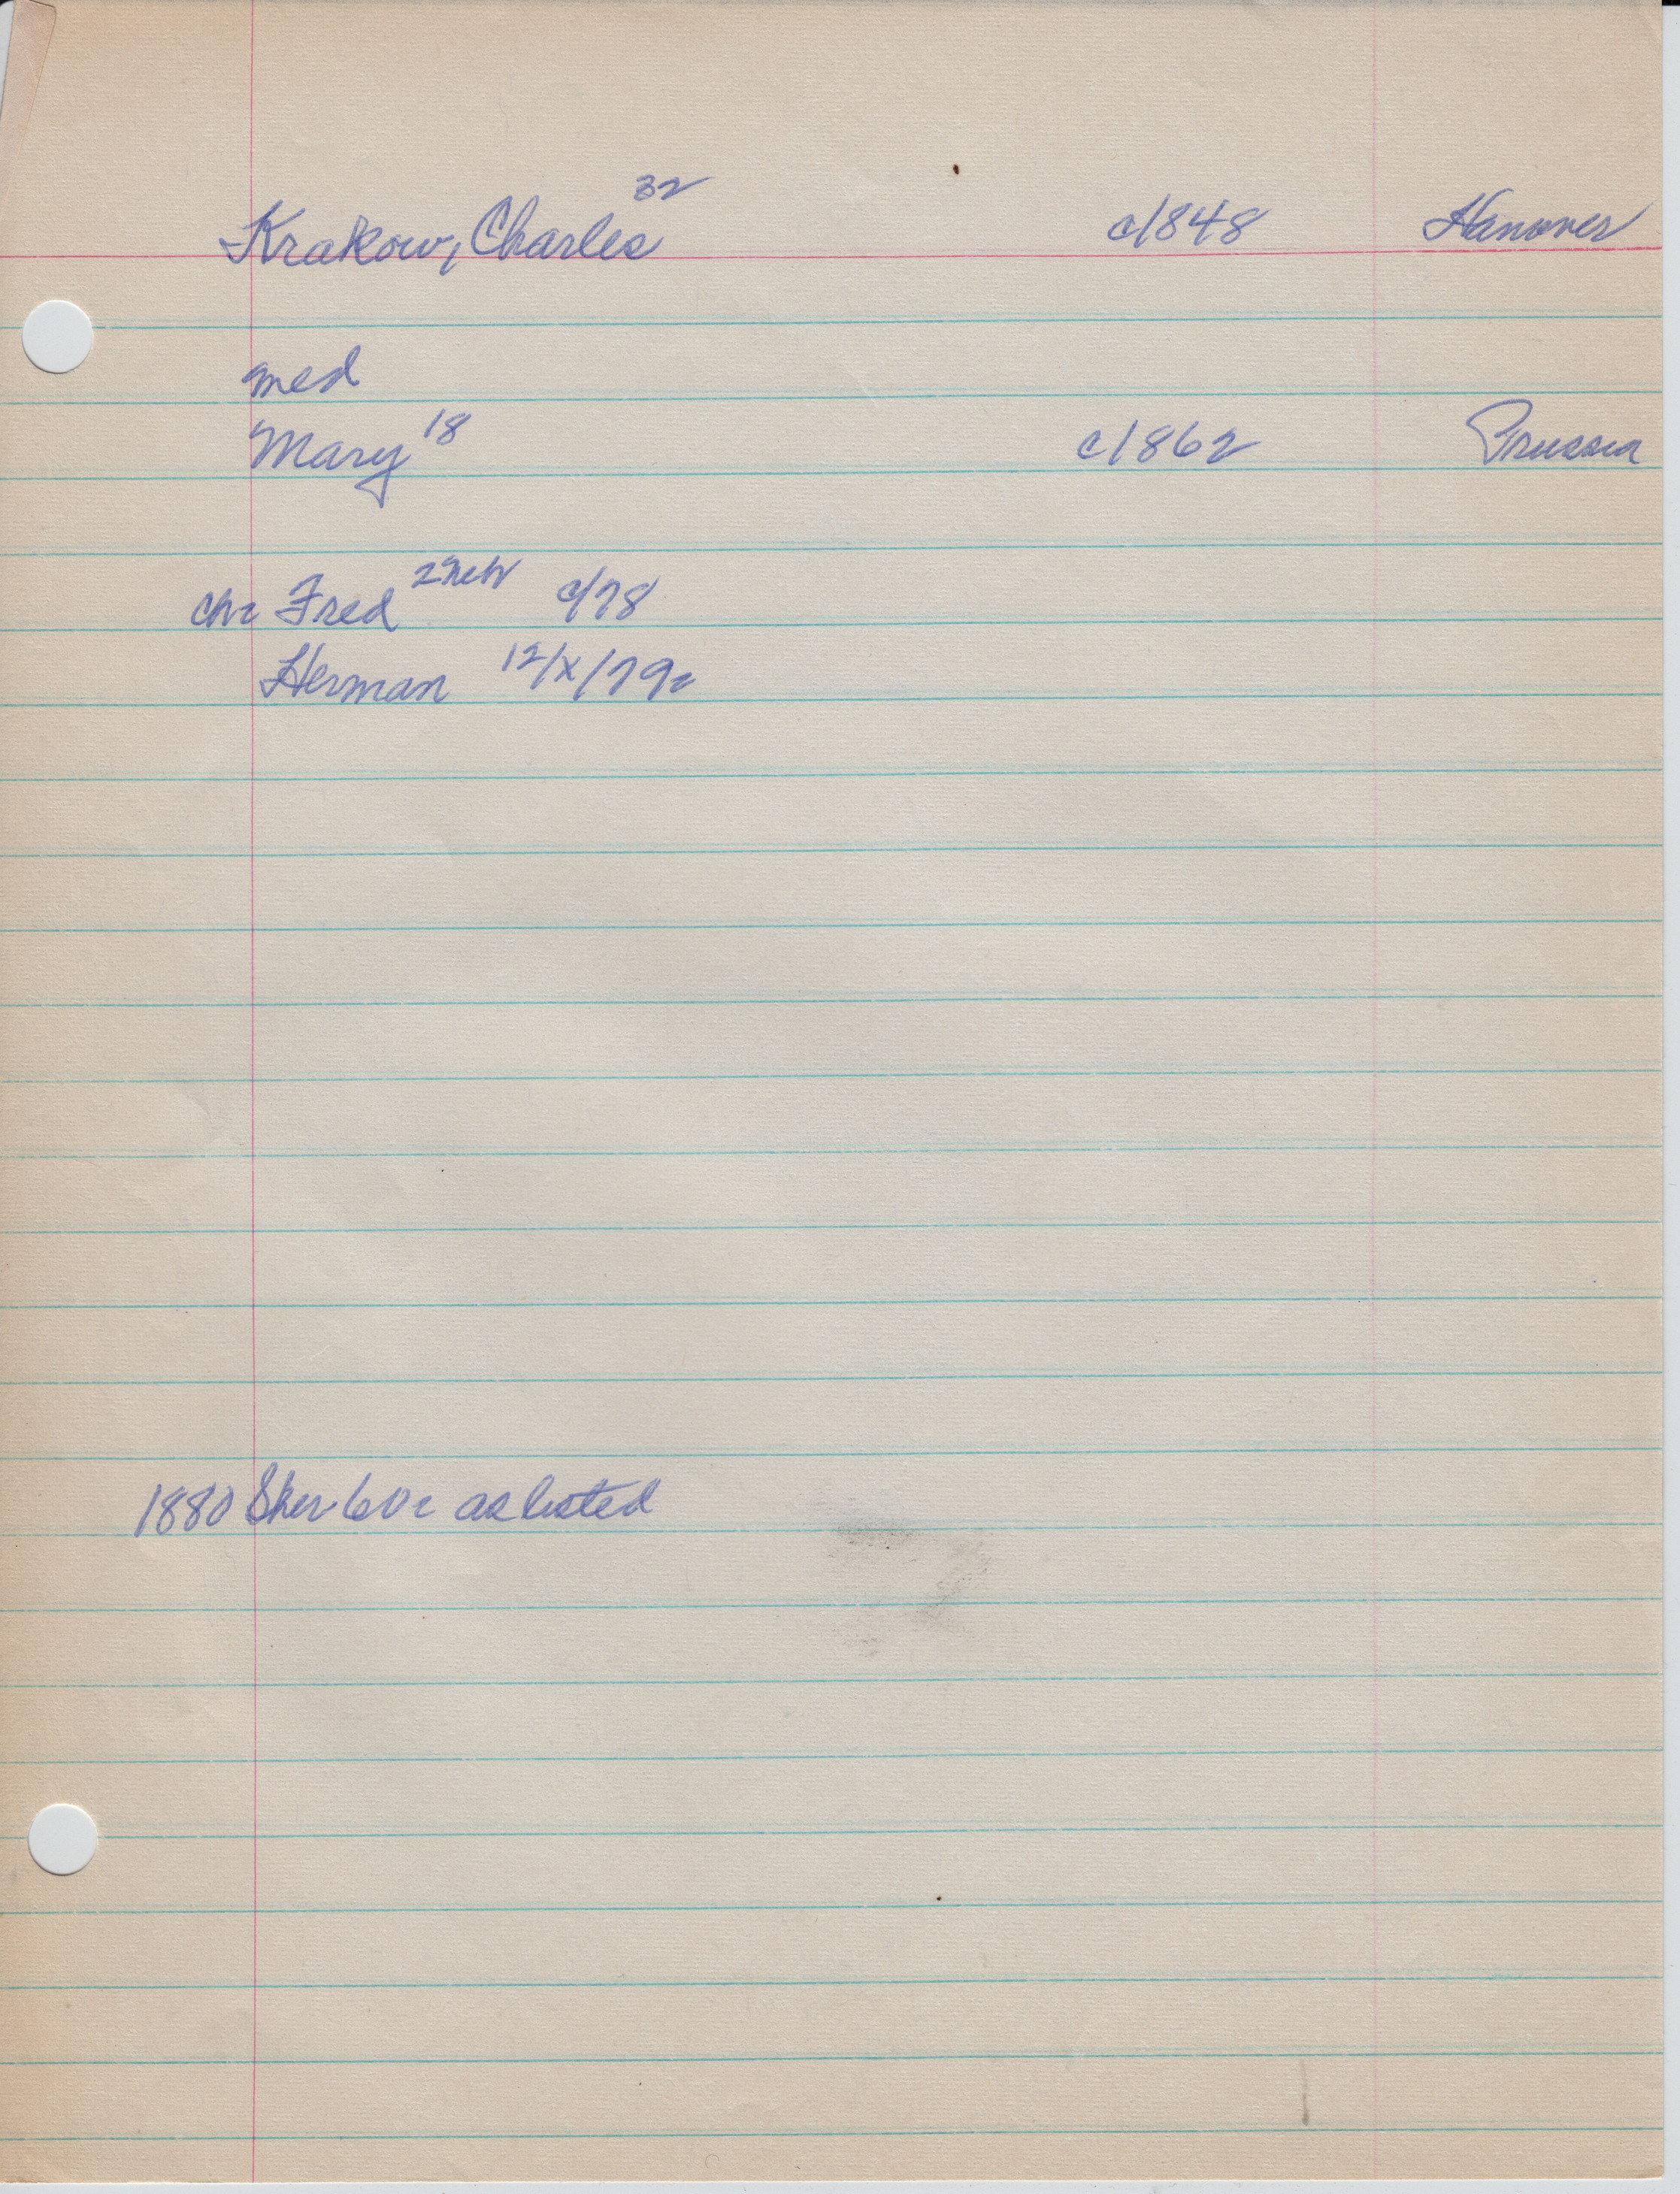 Krakow, Charles 32 c/1848 Hanover
med
Mary 18 c/1862 Prussia
ch: Fred 2 Neb c/78
Herman 12/X/79:
1880 Sher 60: as listed